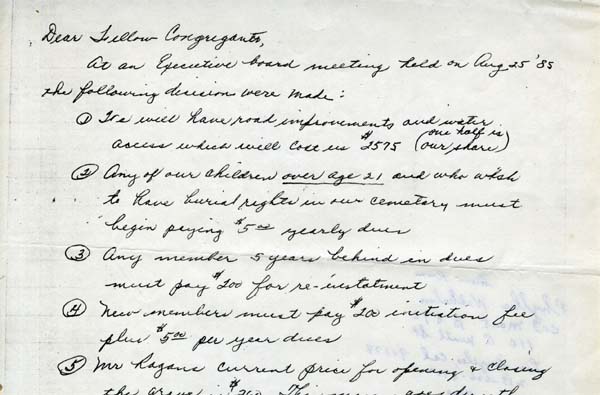 Dear Fellow Congregants,
At an Executive board meeting held on Aug 25 '85
the following decision were made:
① We will have road improvements and water
access which will cost us $2575 (one half is our share)
② Any of our children over age 21 and who wish
to have burial rights in our cemetery must
begin paying $5.00 yearly dues
③ Any member 5 years behind in dues
must pay $200 for re-instatment
④ New members must pay $200 initiation fee
plus $5.00 per year dues
⑤ Mr Hagans current price for opening & closing
the grave is $260. The